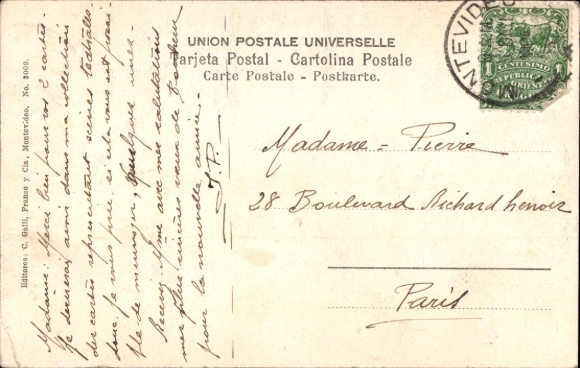 UNION POSTALE UNIVERSELLE
Tarjeta Postal - Cartolina Postale
Carte Postale - Postkarte.
MONTEVIDEO
1
CENTESIMO
REPUBLICA
Editores: C. Galli, Franco y Cia., Montevideo, No.
Madame: Merci bien pour vos 2 cartes.
Je donnerai, aussi dans ma collection
des cartes representant scènes theâtrales
donc je vous prie si cela vous est
ble de m'envoyer, quelque unes.
Recevez Mme avec mes salutations
mes plus sincères vœux de
pour la nouvelle année.
J. P.
Madame - Pierre
28 Boulevard Richard Lenoir
Paris